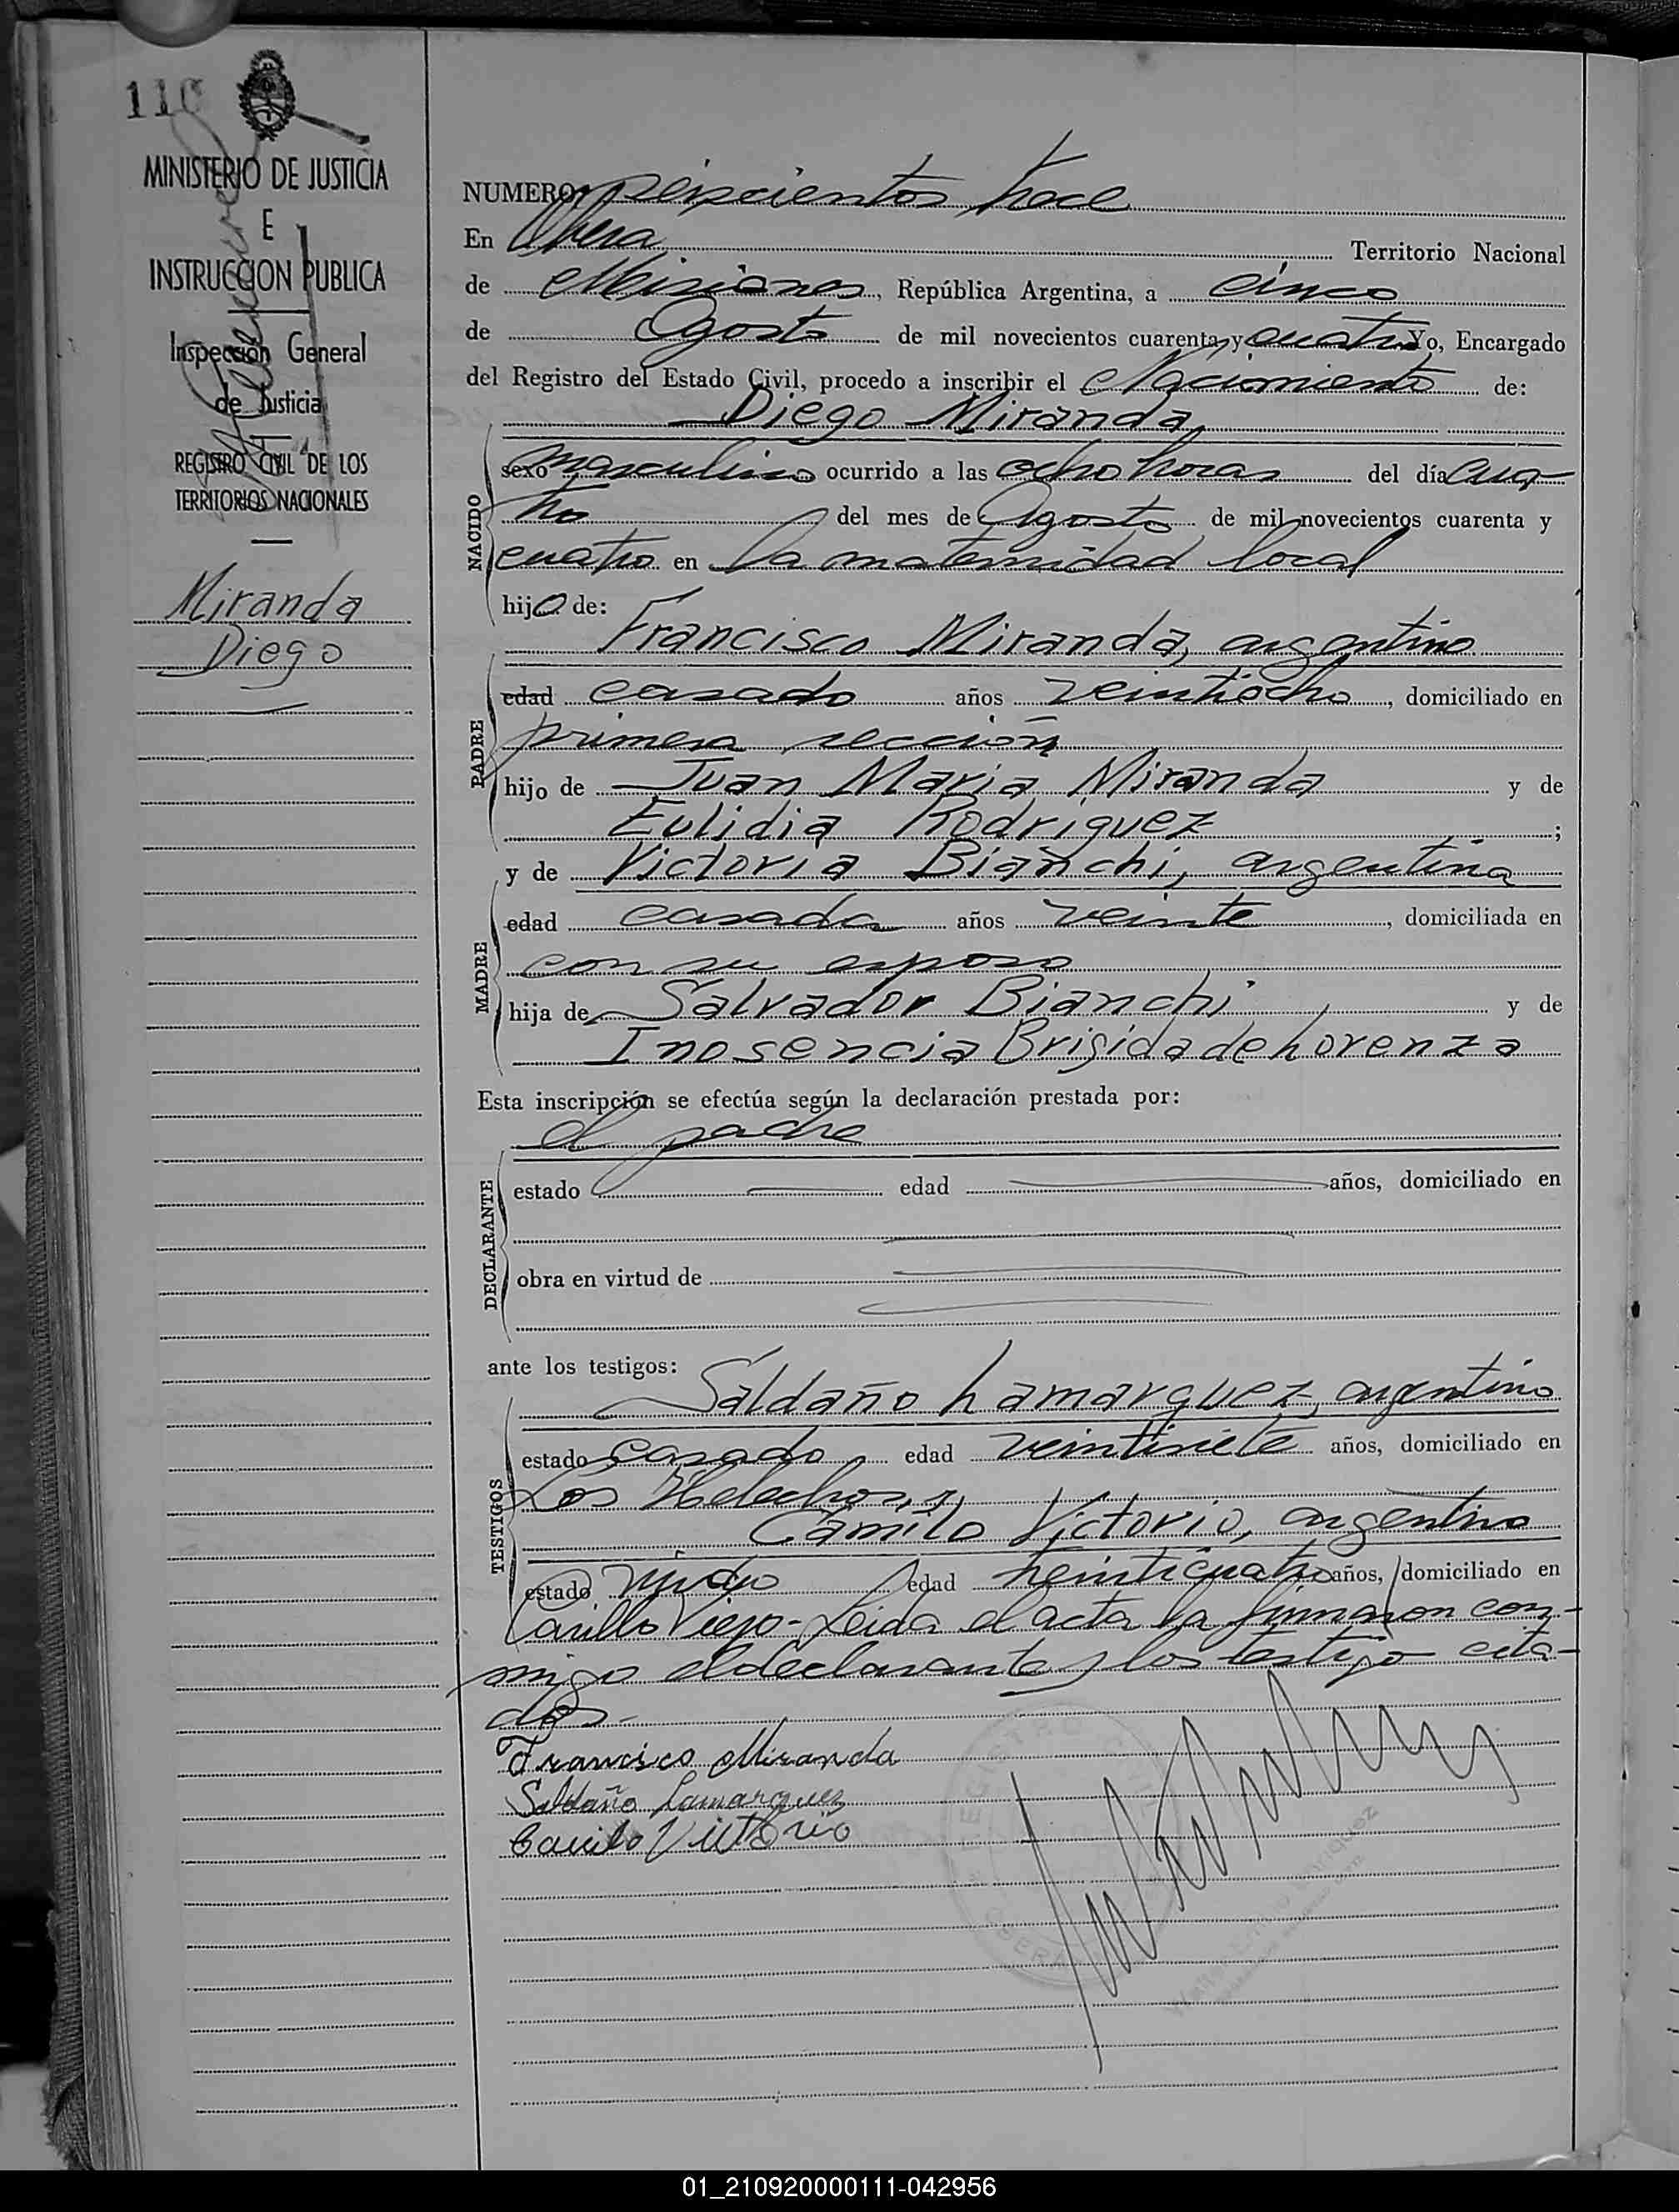 110
MINISTERIO DE JUSTICIA
E
INSTRUCCION PUBLICA
Inspección General
de Justicia
REGISTRO CIVIL DE LOS
TERRITORIOS NACIONALES
Miranda
Diego
NUMERO, seiscientos trece
En Obera Territorio Nacional
de Misiones, República Argentina, a cinco
de Agosto de mil novecientos cuarenta y cuatro Yo, Encargado
del Registro del Estado Civil, procedo a inscribir el Nacimiento de:
Diego Miranda
NACIDO
sexo masculino ocurrido a las ocho horas del día cua-
tro del mes de Agosto de mil novecientos cuarenta y
cuatro en la maternidad local
hijo de:
Francisco Miranda, argentino
PADRE
edad casado años veintiocho, domiciliado en
primera sección
hijo de Juan Maria Miranda y de
Eulidia Rodriguez ;
y de Victoria Bianchi, argentina
MADRE
edad casada años veinte, domiciliada en
con su esposo
hija de Salvador Bianchi y de
Inosencia Brisida de Lorenza
Esta inscripción se efectúa según la declaración prestada por:
el padre
DECLARANTE
estado edad años, domiciliado en
obra en virtud de
ante los testigos:
Saldaño Lamarquez, argentino
TESTIGOS
estado casado edad veintisiete años, domiciliado en
Los Helechos, y
Camilo Victorio, argentino
estado viudo edad treinticuatro años, domiciliado en
Viejo - Leida el acta la firmaron con-
migo el declarante y los testigo cita-
dos-
Francisco Miranda
Saldaño Lamarquez
Camilo Victorio
REGISTRO
OBERA
01_210920000111-042956